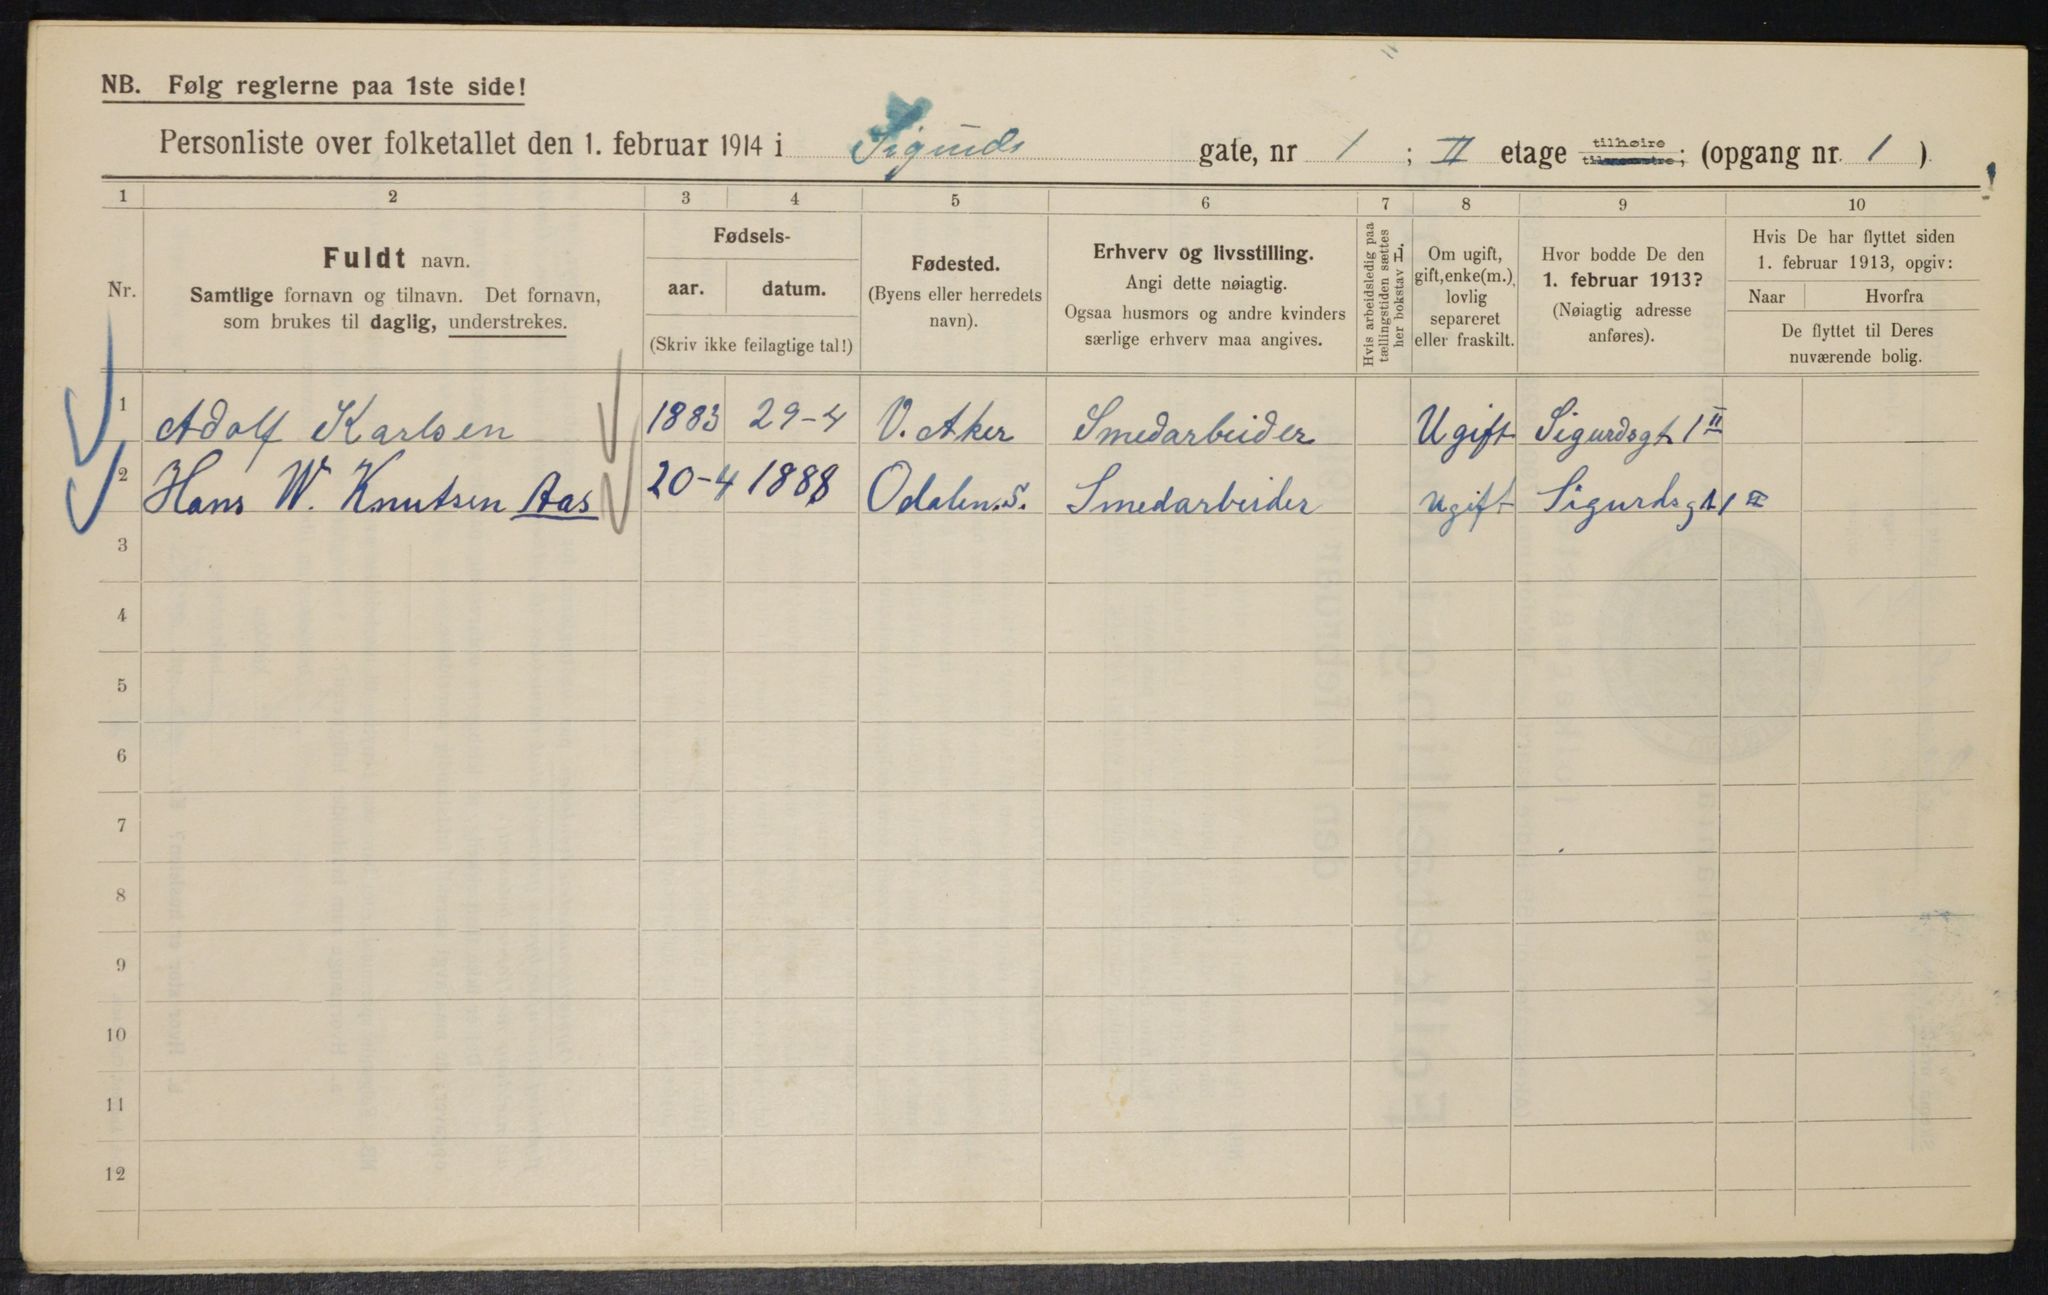 NB. Følg reglerne paa 1ste side!
Personliste over folketallet den 1. februar 1914 i Sigurds gate, nr 1 ; II etage tilhøire ; (opgang nr. 1 )
1 2 3 4 5 6 7 8 9 10
Nr.
Fuldt navn.
Samtlige fornavn og tilnavn. Det fornavn,
som brukes til daglig, understrekes.
Fødsels-
aar. datum.
(Skriv ikke feilagtige tal!)
Fødested.
(Byens eller herredets
navn).
Erhverv og livsstilling.
Angi dette nøiagtig.
Ogsaa husmors og andre kvinders
særlige erhverv maa angives.
Hvis arbeidsledig paa
tællingstiden sættes
her bokstav L.
Om ugift,
gift, enke(m.),
lovlig
separeret
eller fraskilt.
Hvor bodde De den
1. februar 1913?
(Nøiagtig adresse
anføres).
Hvis De har flyttet siden
1. februar 1913, opgiv:
Naar Hvorfra
De flyttet til Deres
nuværende bolig.
1 Adolf Karlsen 1883 29-4 V. Aker Smedarbeider Ugift Sigurdsgt 1 II
2 Hans W. Knutsen Aas 20-4 1888 Odalen. S. Smedarbeider Ugift Sigurdsgt 1 II
3
4
5
6
7
8
9
10
11
12